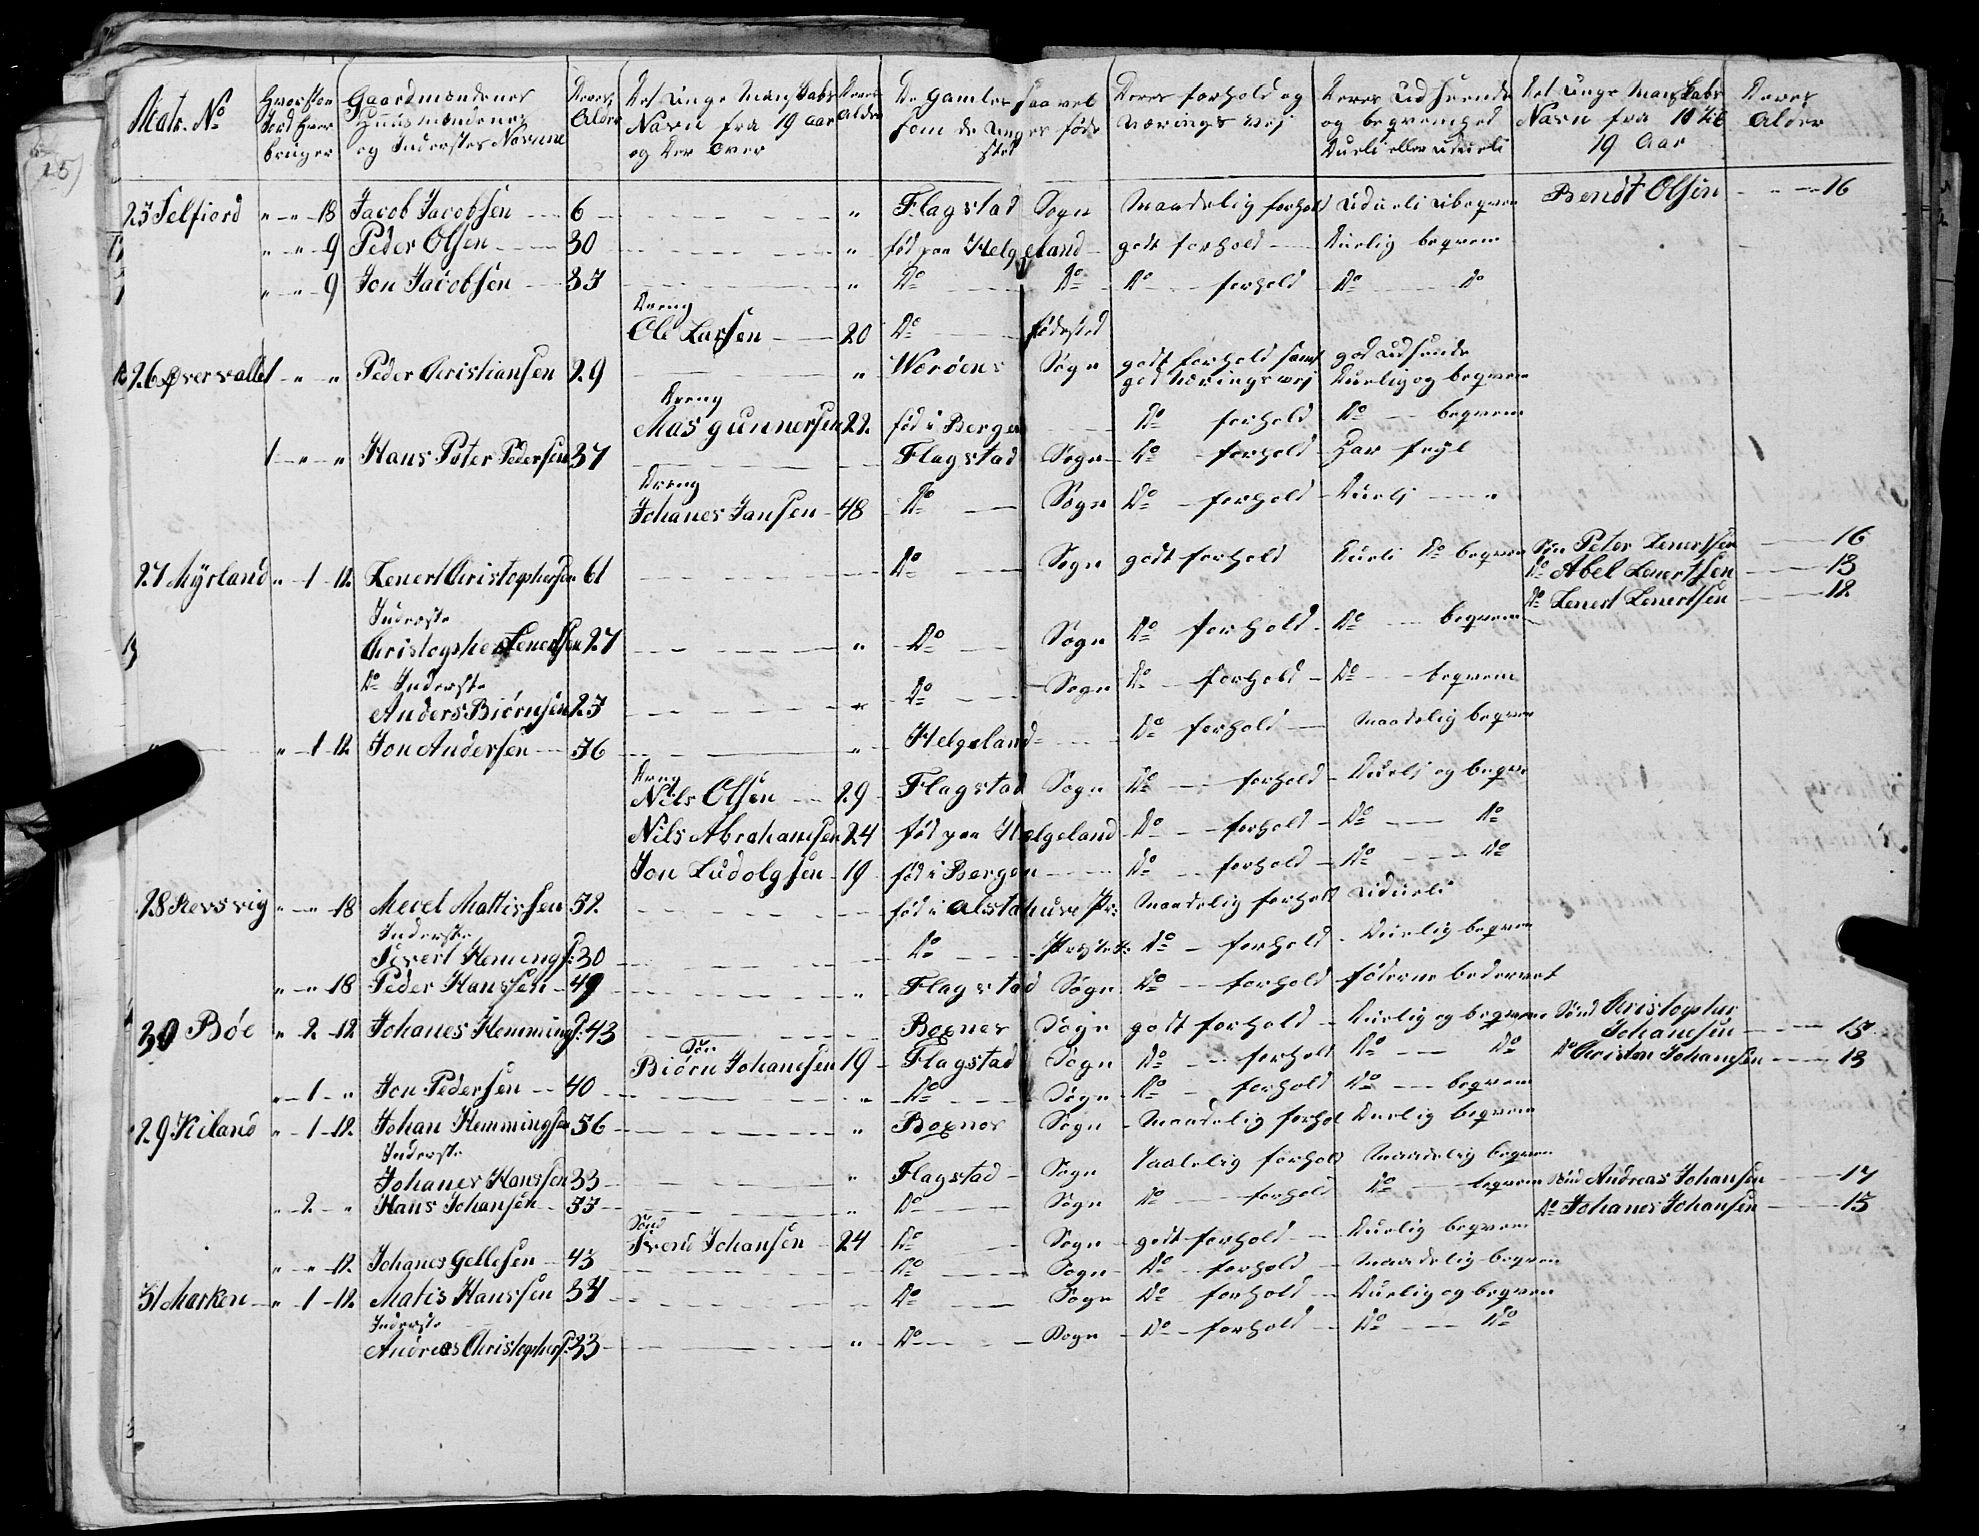 Matr. No | Hvor stor Jord hver bruger | Gaardmændenes Huusmændenes og Inderstes Navne | Deres Alder | Det Unge Manskabs Navn fra 19 Aar og der Over | Deres Alder | De Gamles saavel som de Unges føde sted | Deres forhold og Nærings vej | Deres Udseende og beqvemhed Dueli eller udueli | Det Unge Manskabs Navn fra 10 til 19 Aar | Deres Alder
25 Selfiord " – " – 18 Jacob Jacobsen 6 " Flagstad Sogn Maadelig forhold Udueli Ubeqvem Bendt Olsen 16
" – " – 9 Peder Olsen 30 " fød paa Helgeland godt forhold Duelig beqvem
" – " – 9 Jon Jacobsen 33 " Do Do Do forhold Do Do
Dreng
Ole Larsen 20 Do fødested
26 Øvervallet 1 – " – " Peder Christiansen 29 " Værøens Sogn godt forhold samt god Næringsvej god Udseende Duelig og beqvem
Dreng
Mas Gunnersen 22 fød i Bergen Do forhold Do beqvem
1 – " – " Hans Peter Pedersen 37 Flagstad Sogn Do forhold har fejl
Dreng
Johanes Jansen 48 Do Sogn Do forhold Dueli "
27 Myrland " – 1 – 12 Lenert Christophersen 61 Do Sogn godt forhold Dueli Do beqvem Søn Peter Lenertsen 16
Do Abel Lenertsen 13
Do Lenert Lenertsen 12
Inderste
Christopher Lenertsen 27 " Do Sogn Do forhold Do beqvem
Do Inderste
Anders Biørnsen 23 " Do Sogn Do forhold Do beqvem
" – 1 – 12 Jon Andersen 36 " Helgeland Do forhold Maadelig beqvem
Dreng
Nils Olsen 29 Flagstad Sogn Do forhold Dueli og beqve
Nils Abrahamsen 24 fød paa Helgeland Do forhold Do Do
Jon Ludolgsen 19 fød i Bergen Do forhold Do Do
28 Revsvig " – " – 18 Mevel Mattissen 52 fød i Alstahuse Pr: Maadelig forhold Udueli
Inderste
Sivert Hemings: 30 Do Prestet: Do forhold Duelig beqvem
" – " – 18 Peder Hanssen 49 " Flagstad Sogn Do forhold føderne bedervet
30 Bøe " – 2 – 12 Johanes Hemmings: 43 Boxnes Sogn godt forhold Duelig og beqvem Sønd Christopher Johansen 15
Søn
Biørn Johansen 19 Flagstad Sogn Do forhold Do Do Do Christen Johansen 13
" – 1 – " Jon Pedersen 40 " Do Sogn Do forhold Do beqvem
29 Kiland " – 1 – 12 Johan Hemmingsen 56 " Boxnes Sogn Maadelig forhol Duelig beqvem
Inderste
Johanes Hanssen 33 " Flagstad Sogn Taalelig forhold Maadelig beqvem
" – 2 – " Hans Johansen 53 " Do Sogn Do forhold Do beqvem Sønd Andreas Johansen 17
Sønd
Svend Johansen 24 Do Sogn godt forhold Duelig beqvem Do Johanes Johansen 15
" – " – 12 Johanes Gellesen 43 Do Sogn Do forhold Maadelig beqvem
31 Marken " – 1 – 12 Matis Hanssen 34 Do Sogn Do forhold Duelig og beqvem
Inderste
Andreas Christophers: 33 " Do Sogn Do forhold Do Do